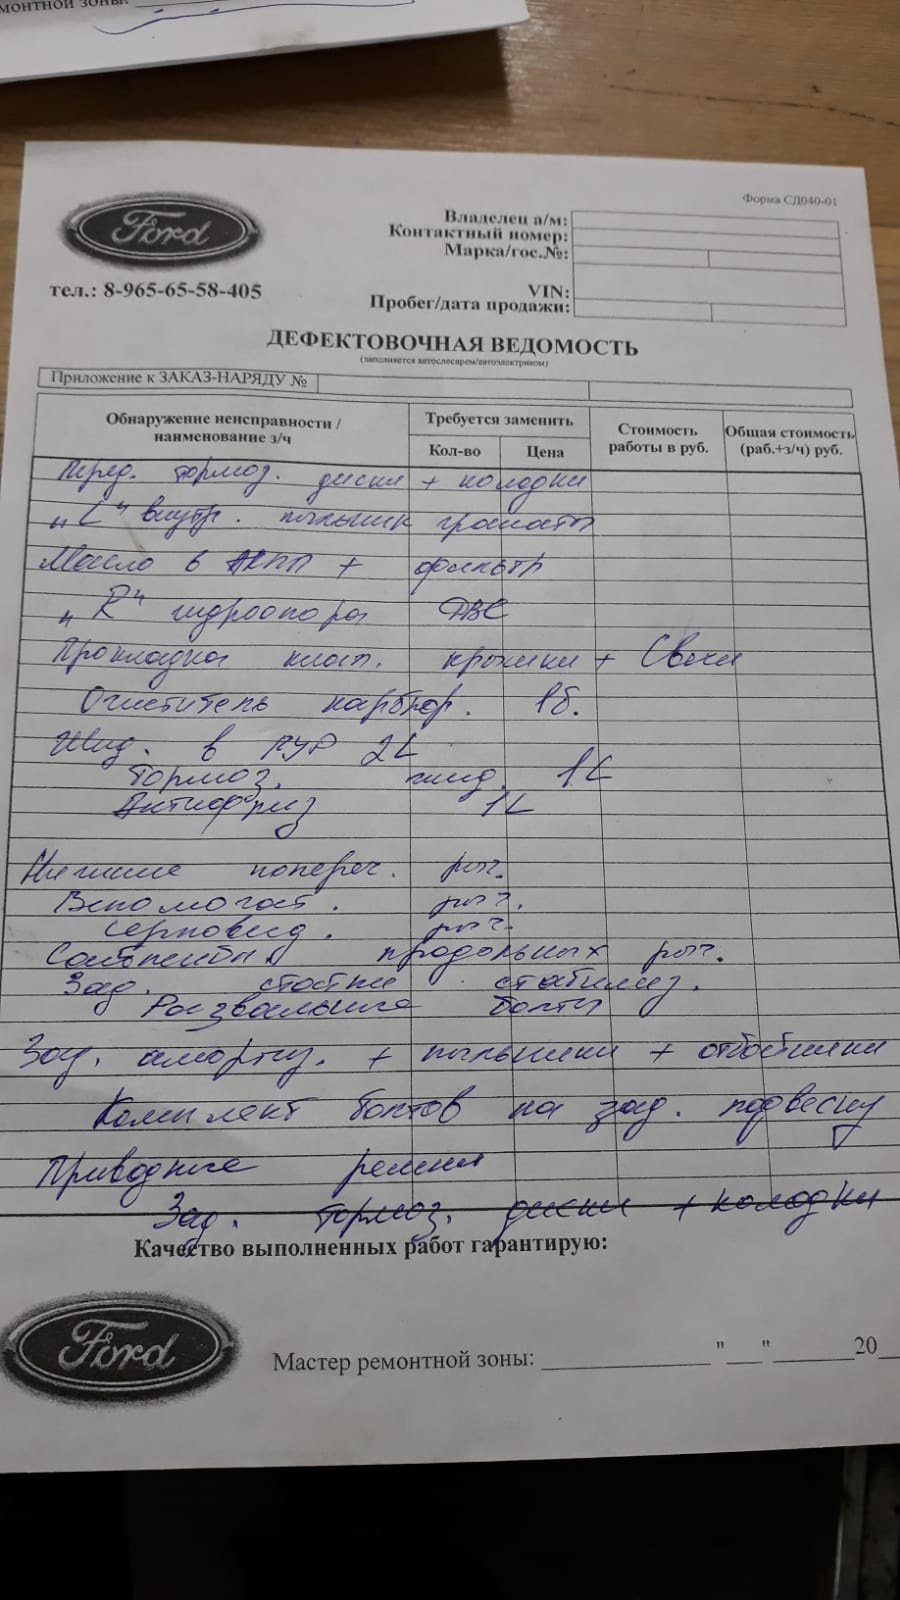 монтной зоны:
Форма СД040-01
Ford
Владелец а/м:
Контактный номер:
Марка/гос.№:
тел.: 8-965-65-58-405
VIN:
Пробег/дата продажи:
ДЕФЕКТОВОЧНАЯ ВЕДОМОСТЬ
(заполняется автослесарем/автоэлектриком)
Приложение к ЗАКАЗ-НАРЯДУ №
Обнаружение неисправности / наименование з/ч
Требуется заменить
Кол-во
Цена
Стоимость работы в руб.
Общая стоимость (раб.+з/ч) руб.
Перед. тормоз. диски + колодки
"L" внутр. пыльник гранаты
Масло в АКПП + фильтр
"R" гидроопора ДВС
Прокладка клап. крышки + Свечи
Очиститель карбюр. 1б.
Жид. в ГУР 2L
Тормоз. жид. 1L
Антифриз 1L
Нижние попереч. рыч.
Вспомогат. рыч.
Серповид. рыч.
Сайленты продольных рыч.
Зад. стойки стабилиз.
Развальные болты
Зад. амортиз. + пыльники + отбойники
Комплект болтов на зад. подвеску
Приводные ремни
Зад. тормоз. диски + колодки
Качество выполненных работ гарантирую:
Ford
Мастер ремонтной зоны: ____________ "___" ______20__